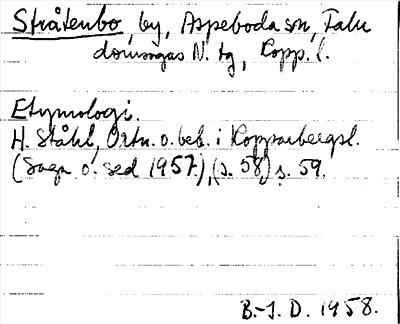 Stråtenbo, by, Aspeboda sn, Falu
domsagas N. tg, Kopp. l.
Etymologi.
H. Ståhl, Ortn. o. beb. i Kopparbergsl.
(Saga o. sed 1957), (s. 58) s. 59.
B.-J. D. 1958.